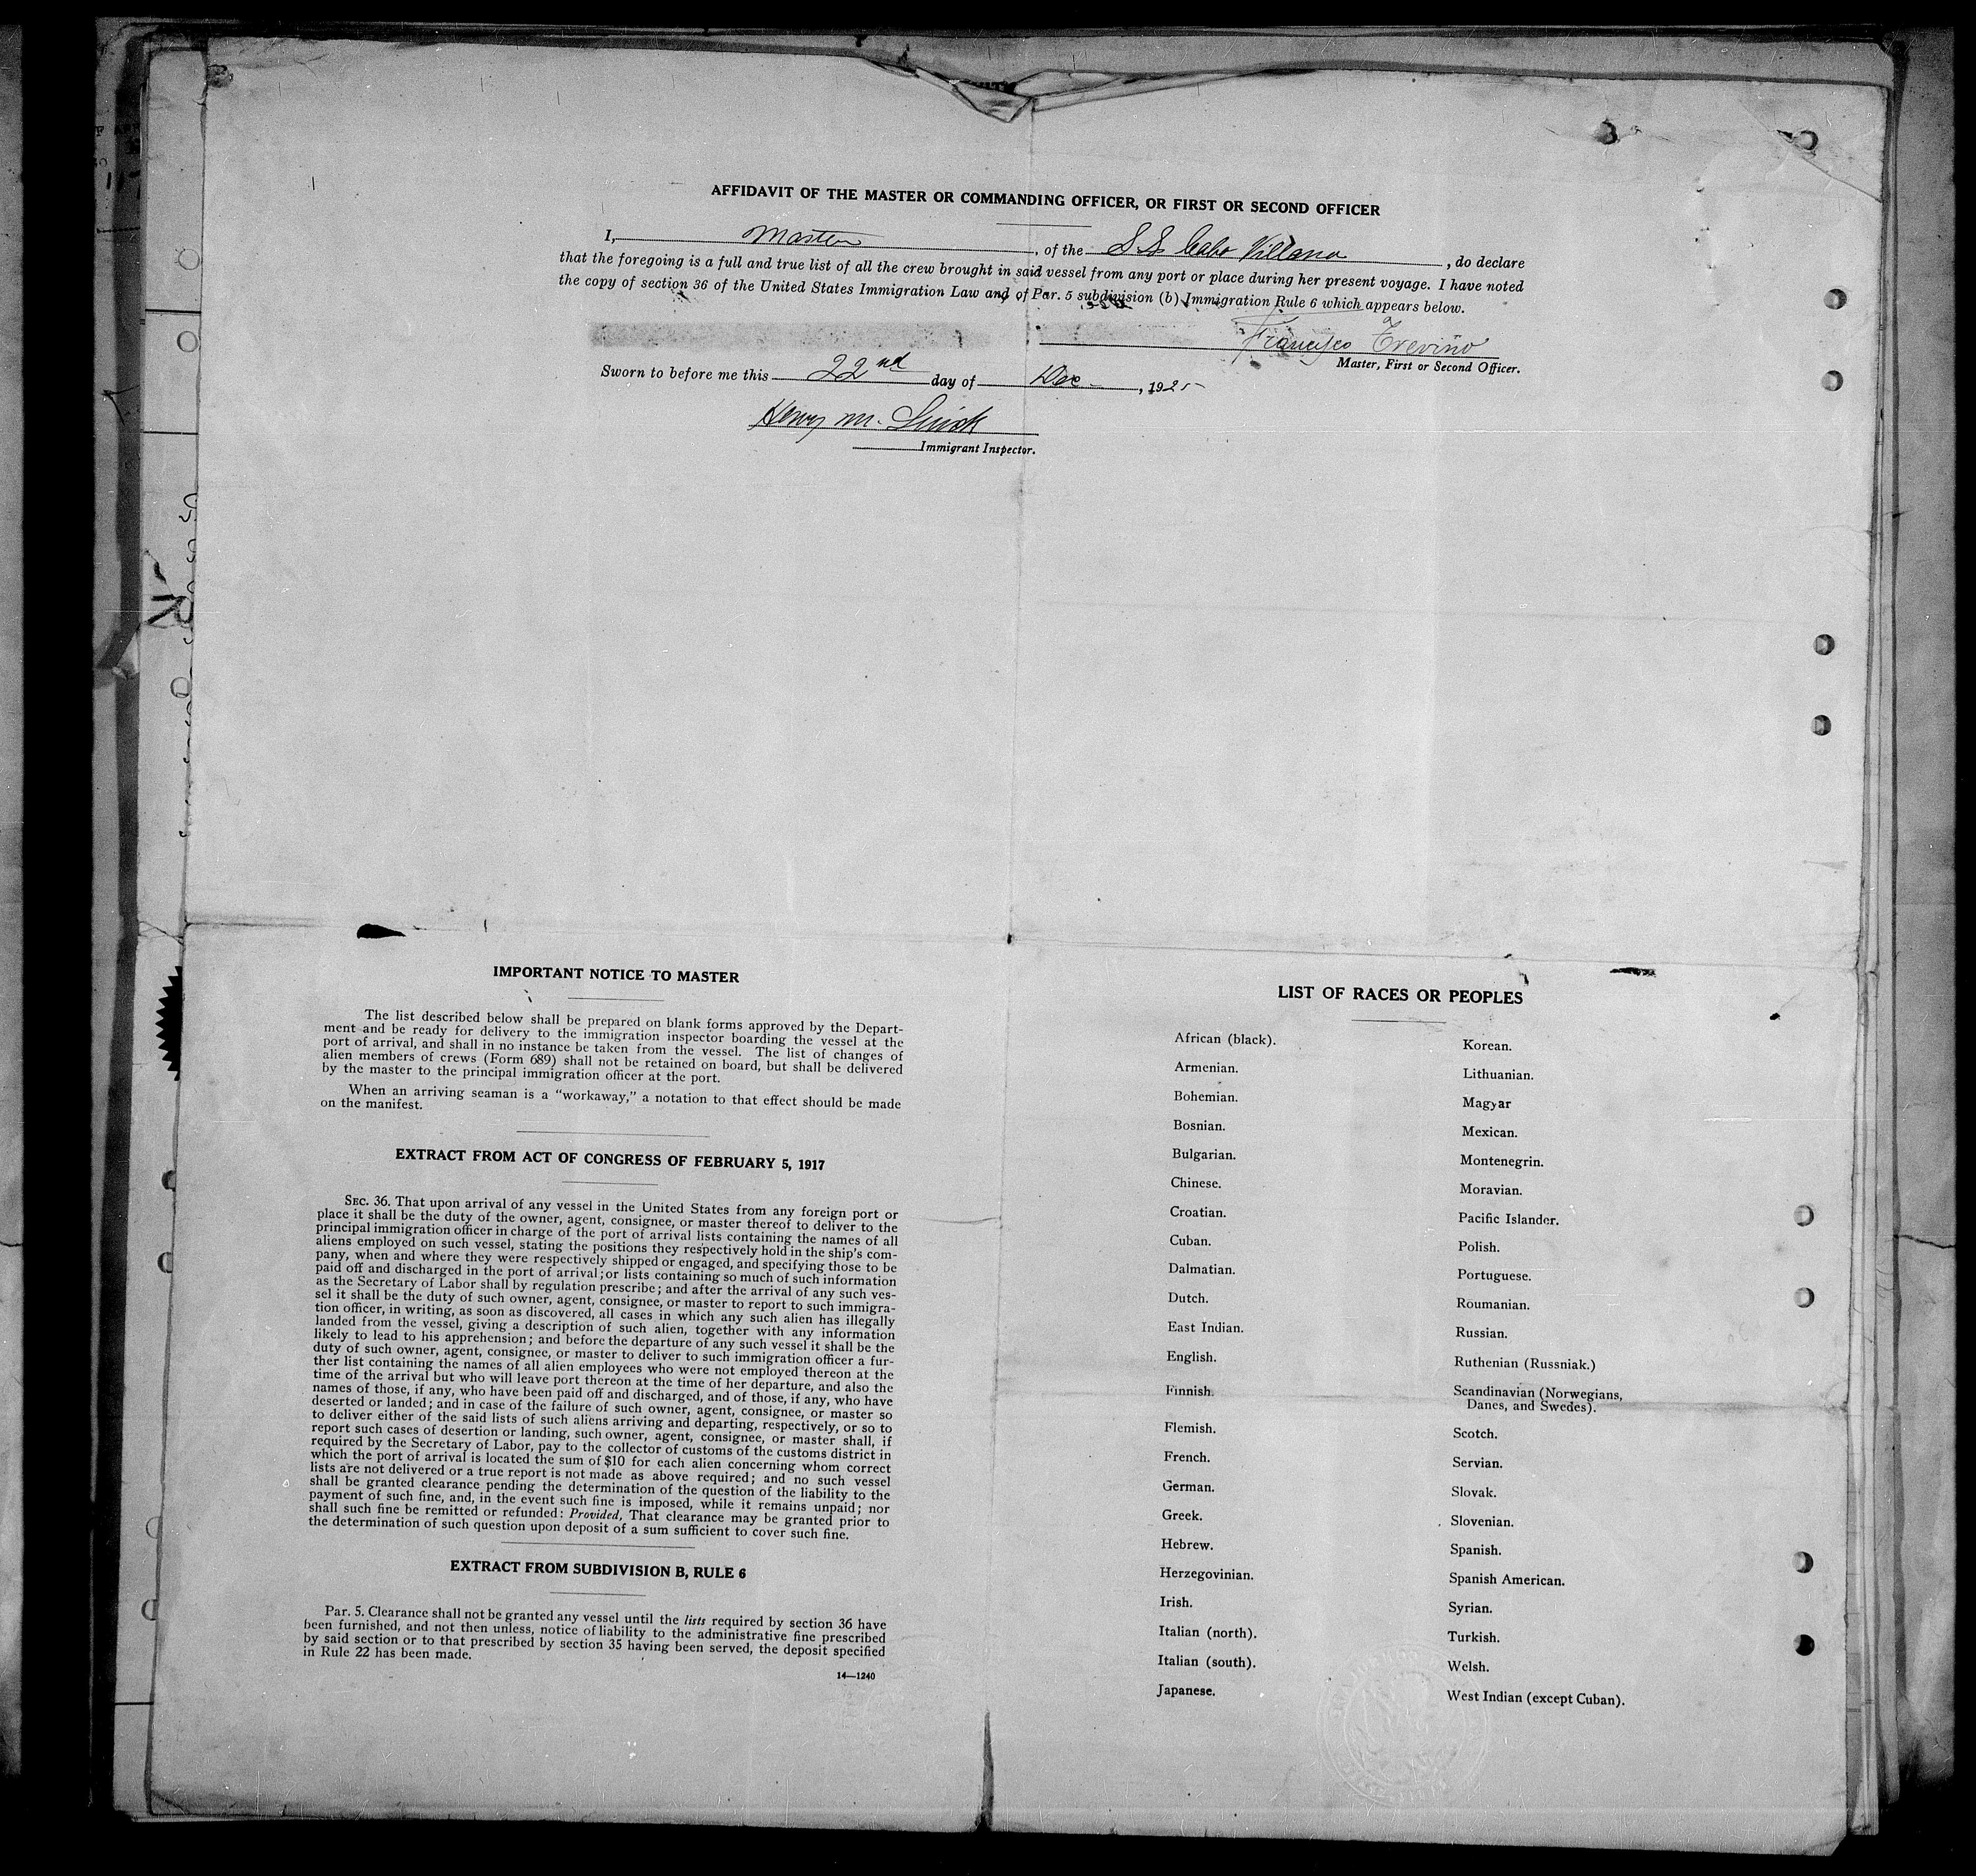 AFFIDAVIT OF THE MASTER OR COMMANDING OFFICER, OR FIRST OR SECOND OFFICER
I, Master, of the S.S. Cabo Villano, do declare
that the foregoing is a full and true list of all the crew brought in said vessel from any port or place during her present voyage. I have noted
the copy of section 36 of the United States Immigration Law and of Par. 5 subdivision (b) Immigration Rule 6 which appears below.
Francisco Trevino
Master, First or Second Officer.
Sworn to before me this 22nd day of Dec, 1925
Henry M.
Immigrant Inspector.
IMPORTANT NOTICE TO MASTER
The list described below shall be prepared on blank forms approved by the Depart-
ment and be ready for delivery to the immigration inspector boarding the vessel at the
port of arrival, and shall in no instance be taken from the vessel. The list of changes of
alien members of crews (Form 689) shall not be retained on board, but shall be delivered
by the master to the principal immigration officer at the port.
When an arriving seaman is a "workaway," a notation to that effect should be made
on the manifest.
EXTRACT FROM ACT OF CONGRESS OF FEBRUARY 5, 1917
SEC. 36. That upon arrival of any vessel in the United States from any foreign port or
place it shall be the duty of the owner, agent, consignee, or master thereof to deliver to the
principal immigration officer in charge of the port of arrival lists containing the names of all
aliens employed on such vessel, stating the positions they respectively hold in the ship's com-
pany, when and where they were respectively shipped or engaged, and specifying those to be
paid off and discharged in the port of arrival; or lists containing so much of such information
as the Secretary of Labor shall by regulation prescribe; and after the arrival of any such ves-
sel it shall be the duty of such owner, agent, consignee, or master to report to such immigra-
tion officer, in writing, as soon as discovered, all cases in which any such alien has illegally
landed from the vessel, giving a description of such alien, together with any information
likely to lead to his apprehension; and before the departure of any such vessel it shall be the
duty of such owner, agent, consignee, or master to deliver to such immigration officer a fur-
ther list containing the names of all alien employees who were not employed thereon at the
time of the arrival but who will leave port thereon at the time of her departure, and also the
names of those, if any, who have been paid off and discharged, and of those, if any, who have
deserted or landed; and in case of the failure of such owner, agent, consignee, or master so
to deliver either of the said lists of such aliens arriving and departing, respectively, or so to
report such cases of desertion or landing, such owner, agent, consignee, or master shall, if
required by the Secretary of Labor, pay to the collector of customs of the customs district in
which the port of arrival is located the sum of $10 for each alien concerning whom correct
lists are not delivered or a true report is not made as above required; and no such vessel
shall be granted clearance pending the determination of the question of the liability to the
payment of such fine, and, in the event such fine is imposed, while it remains unpaid; nor
shall such fine be remitted or refunded: Provided, That clearance may be granted prior to
the determination of such question upon deposit of a sum sufficient to cover such fine.
EXTRACT FROM SUBDIVISION B, RULE 6
Par. 5. Clearance shall not be granted any vessel until the lists required by section 36 have
been furnished, and not then unless, notice of liability to the administrative fine prescribed
by said section or to that prescribed by section 35 having been served, the deposit specified
in Rule 22 has been made.
14—1240
LIST OF RACES OR PEOPLES
African (black).
Armenian.
Bohemian.
Bosnian.
Bulgarian.
Chinese.
Croatian.
Cuban.
Dalmatian.
Dutch.
East Indian.
English.
Finnish.
Flemish.
French.
German.
Greek.
Hebrew.
Herzegovinian.
Irish.
Italian (north).
Italian (south).
Japanese.
Korean.
Lithuanian.
Magyar
Mexican.
Montenegrin.
Moravian.
Pacific Islander.
Polish.
Portuguese.
Roumanian.
Russian.
Ruthenian (Russniak.)
Scandinavian (Norwegians,
Danes, and Swedes).
Scotch.
Servian.
Slovak.
Slovenian.
Spanish.
Spanish American.
Syrian.
Turkish.
Welsh.
West Indian (except Cuban).